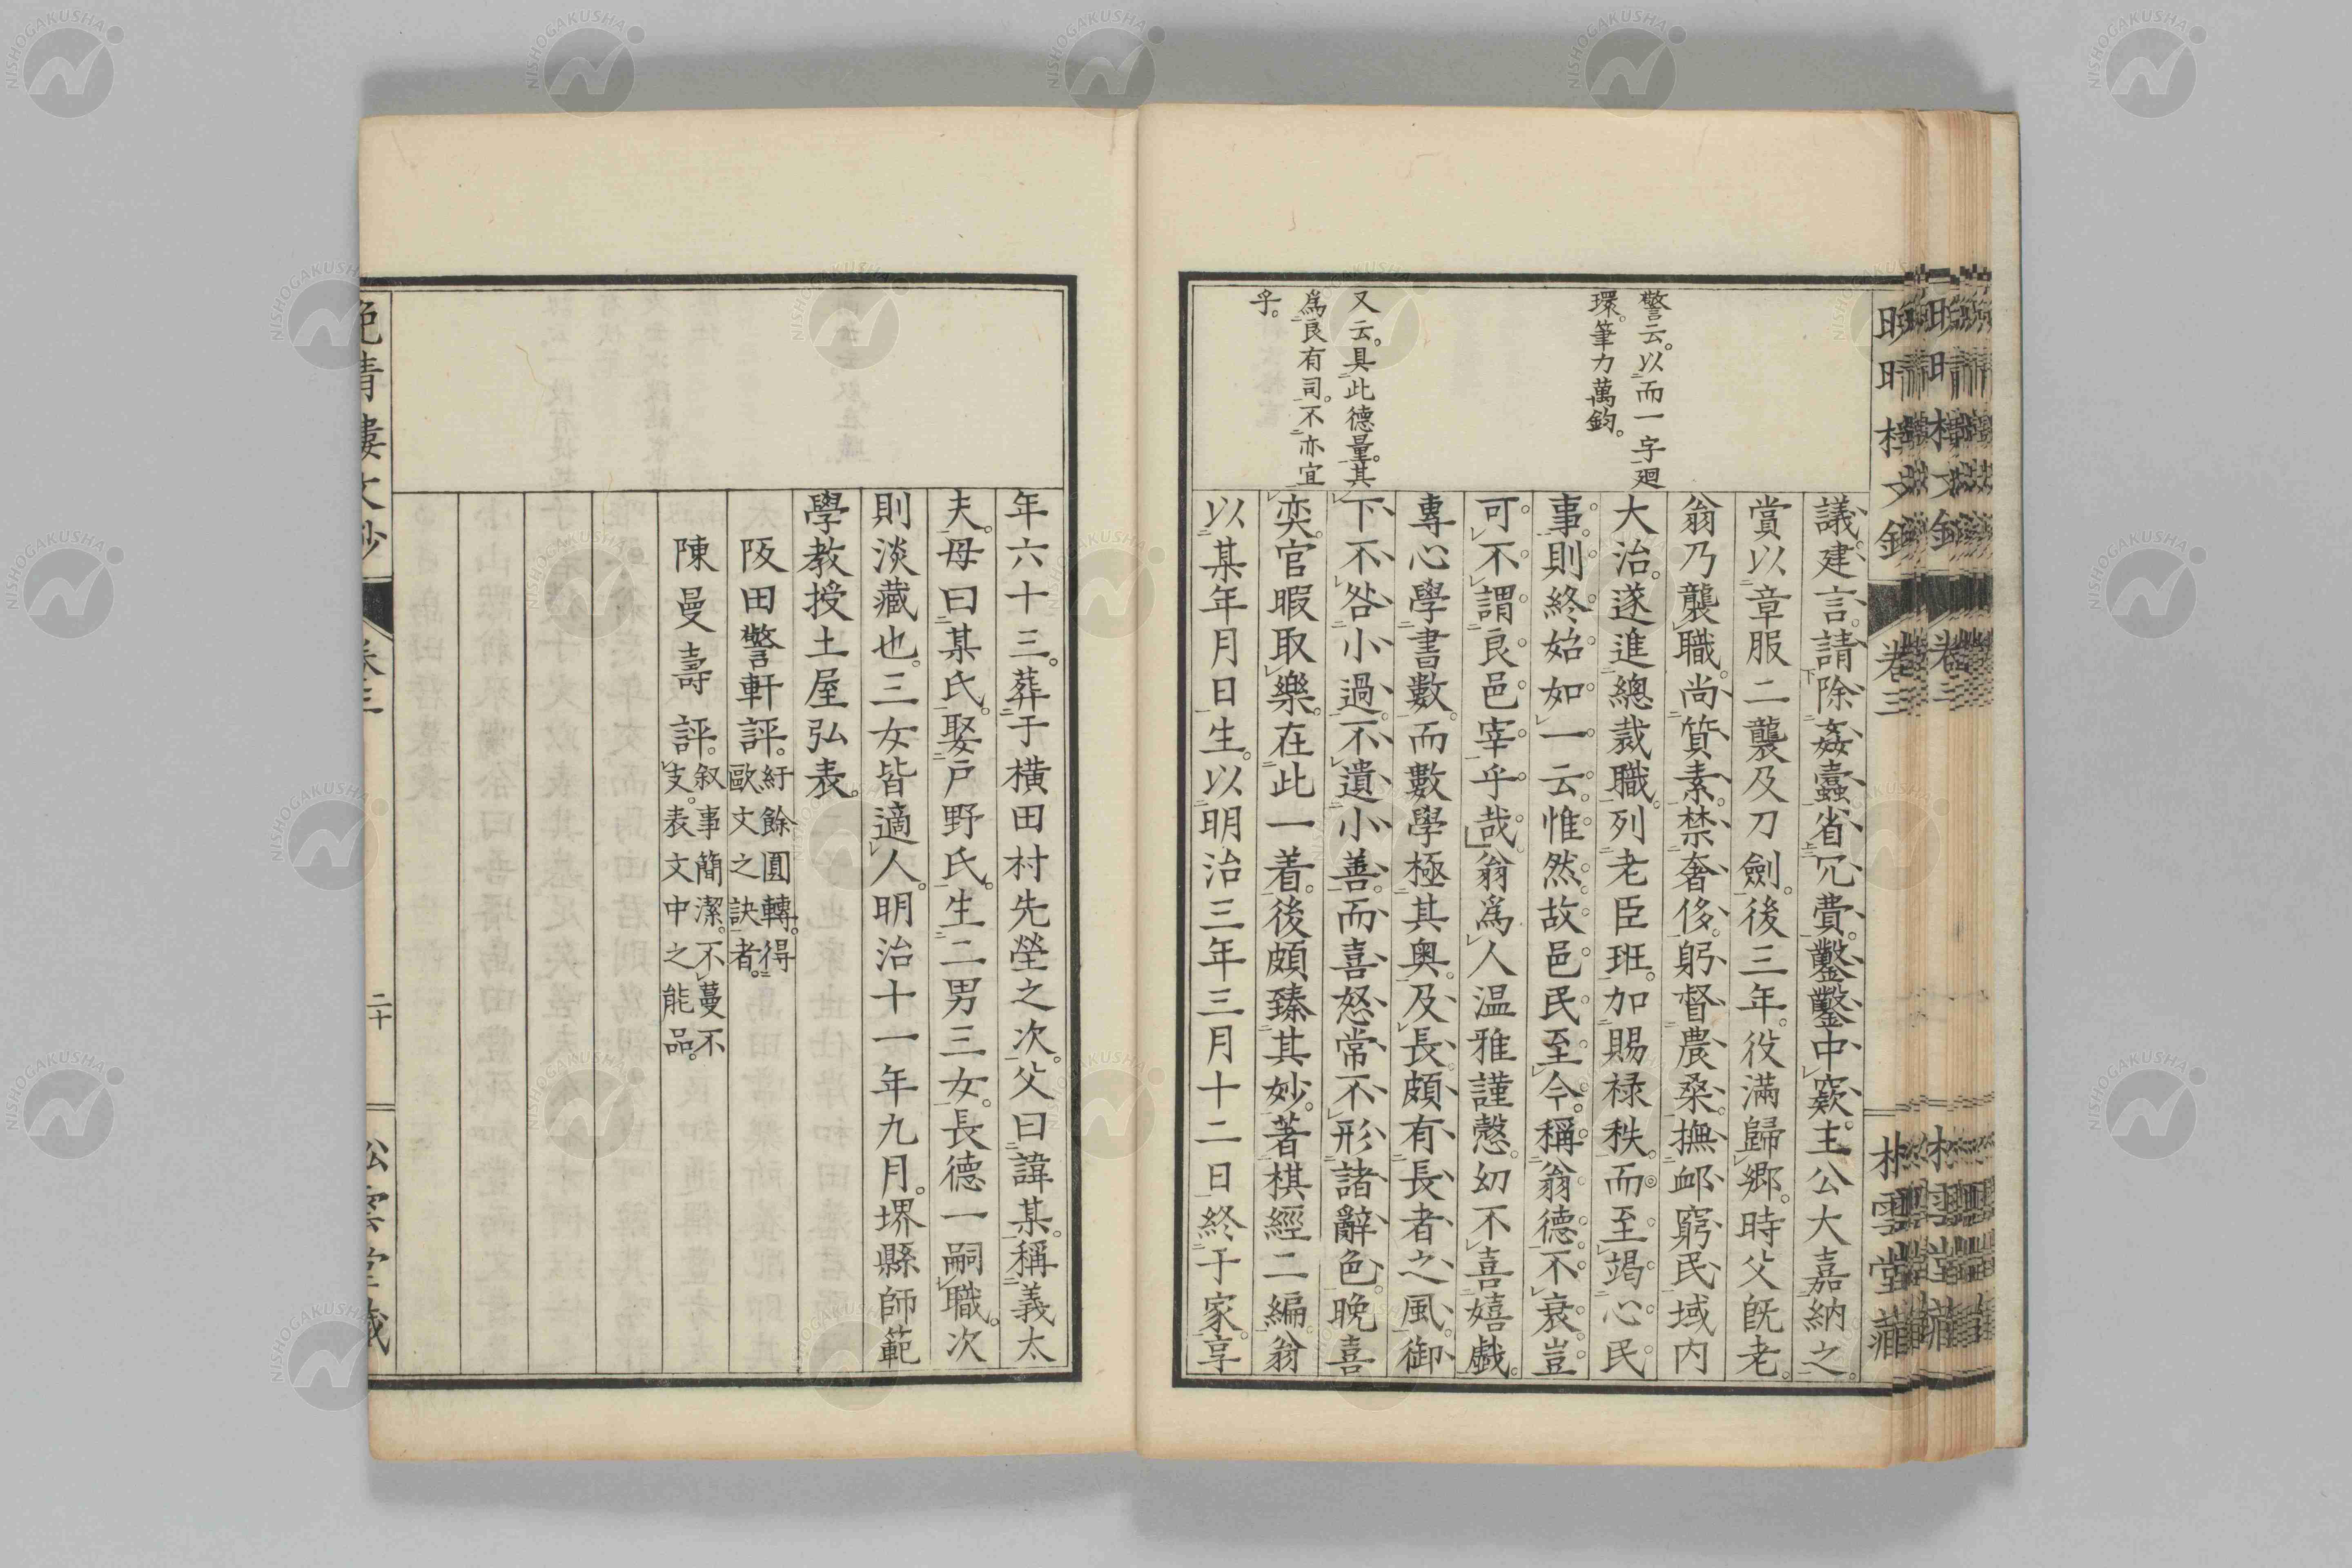 警云。以而一字廻
環。筆力萬鈞。
又云。具此德量。其
爲良有司。不亦宜
乎。
議。建言。請除姦蠹。省冗費。鑿鑿中窾。主公大嘉納之。
賞以章服二襲及刀劍。後三年。役滿歸鄉。時父既老。
翁乃襲職。尚質素。禁奢侈。躬督農桑。撫卹窮民。域内
大治。遂進總裁職。列老臣班。加賜禄秩。而至竭心民
事。則終始如一云。惟然。故邑民至今。稱翁德不衰。豈
可不謂良邑宰乎哉。翁爲人温雅謹慤。幼不喜嬉戲。
專心學書數。而數學極其奧。及長。頗有長者之風。御
下不咎小過。不遺小善。而喜怒常不形諸辭色。晚喜
奕。官暇取樂。在此一着。後頗臻其妙。著棋經二編。翁
以某年月日生。以明治三年三月十二日終于家。享
年六十三。葬于橫田村先塋之次。父曰諱某。稱義太
夫。母曰某氏。娶戸野氏。生二男三女。長德一嗣職。次
則淡藏也。三女皆適人。明治十一年九月。堺縣師範
學教授土屋弘表。
阪田警軒評。紆餘圓轉。得歐文之訣者。
陳曼壽評。叙事簡潔。不蔓不支。表文中之能品。
卷三
二十
NISHOGAKUSHA